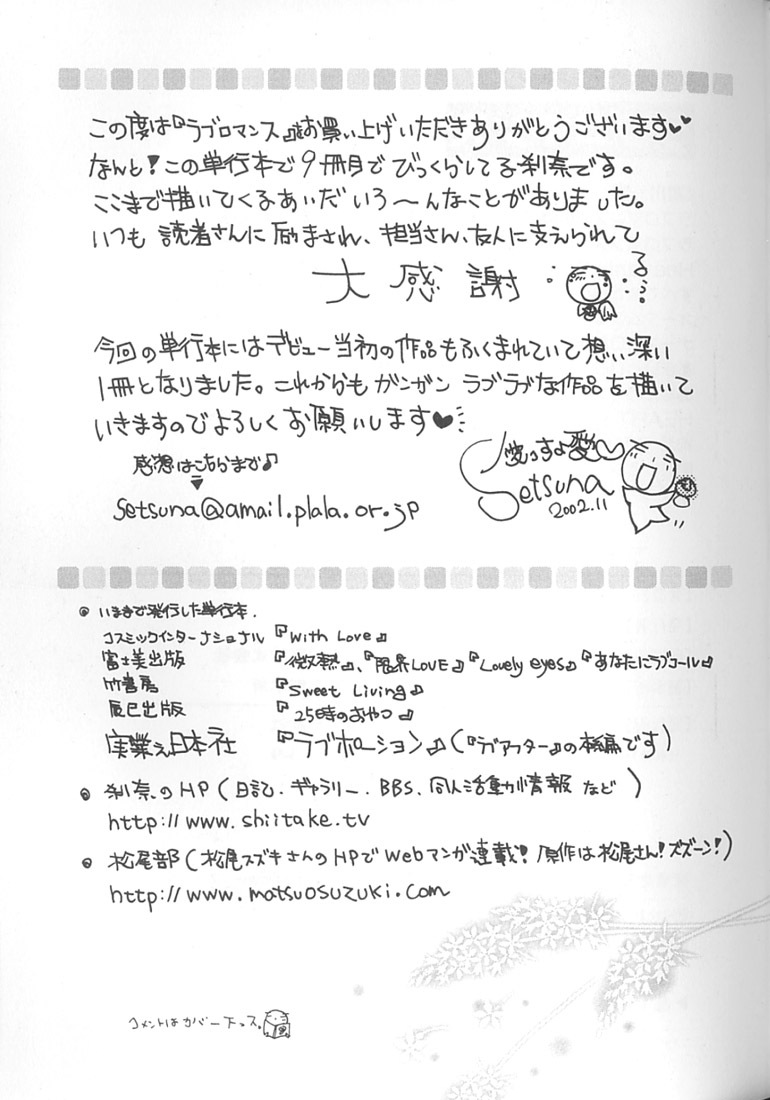 この度は『ラブロマンス』をお買い上げいただきありがとうございます♥♥
なんと!この単行本で9冊目でびっくらしてる刹奈です。
ここまで描いてくるあいだいろ〜んなことがありました。
いつも読者さんに励まされ、担当さん、友人に支えられて
大感謝
るっ
今回の単行本にはデビュー当初の作品もふくまれていて想い深い
1冊となりました。これからもガンガン ラブラブな作品を描いて
いきますのでよろしくお願いします♥
感想はこちらまで♪
▼
setsuna@amail.plala.or.jp
愛っすよ愛
Setsuna
2002.11
いままで発行した単行本.
コスミックインターナショナル 『With Love』
富士美出版 『微熱』、『限界LOVE』『Lovely eyes』『あなたにラブコール』
竹書房 『Sweet Living』
辰巳出版 『25時のおやつ』
実業之日本社 『ラブポーション』(『ラブアフター』の本編です)
刹奈のHP(日記.ギャラリー.BBS、同人活動情報 など)
http://www.shiitake.tv
松尾部(松尾スズキさんのHPでWebマンガ連載!原作は松尾さん!ズズーン!)
http://www.matsuosuzuki.com
コメントはカバー下っス。